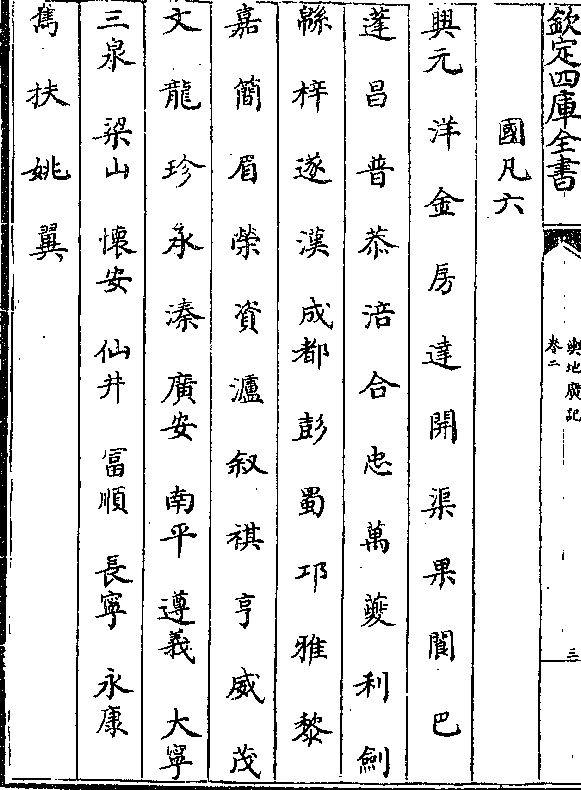 欽定四庫全書
輿地廣記
卷二
三
國凡六
興元 洋 金 房 達 開 渠 果 閬 巴
蓬 昌 普 恭 涪 合 忠 萬 夔 利 劍
緜 梓 遂 漢 成都 彭 蜀 邛 雅 黎
嘉 簡 眉 榮 資 瀘 叙 祺 亨 威 茂
文 龍 珍 承 溱 廣安 南平 遵義 大寧
三泉 梁山 懷安 仙井 富順 長寧 永康
雟 扶 姚 翼